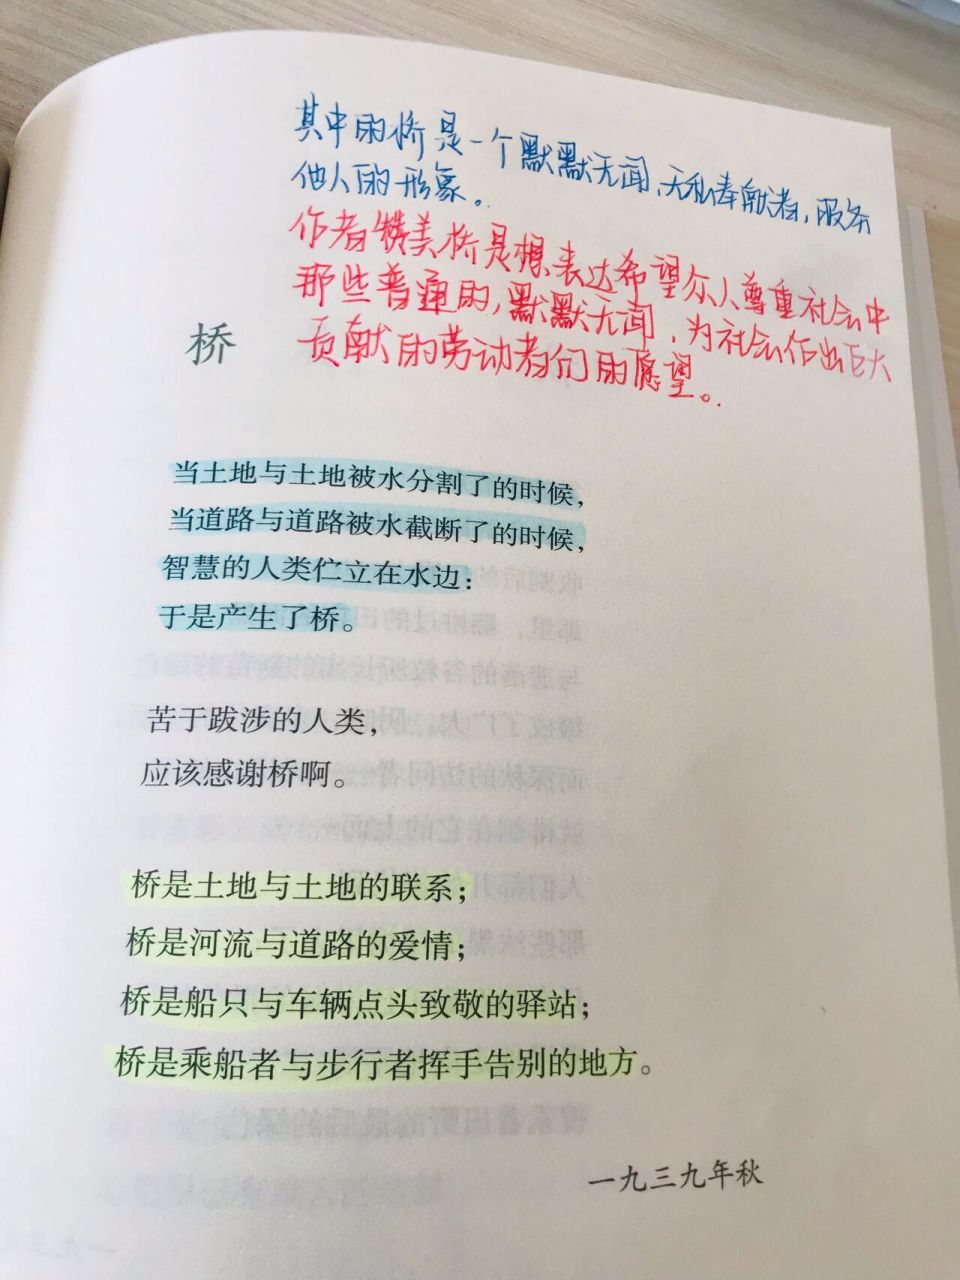 其中的桥是一个默默无闻、无私奉献者，服务
他人的形象。
作者赞美桥是想表达希望尔人尊重社会中
那些普通的，默默无闻，为社会作出巨大
贡献的劳动者们的愿望。
桥
当土地与土地被水分割了的时候，
当道路与道路被水截断了的时候，
智慧的人类伫立在水边：
于是产生了桥。
苦于跋涉的人类，
应该感谢桥啊。
桥是土地与土地的联系；
桥是河流与道路的爱情；
桥是船只与车辆点头致敬的驿站；
桥是乘船者与步行者挥手告别的地方。
一九三九年秋